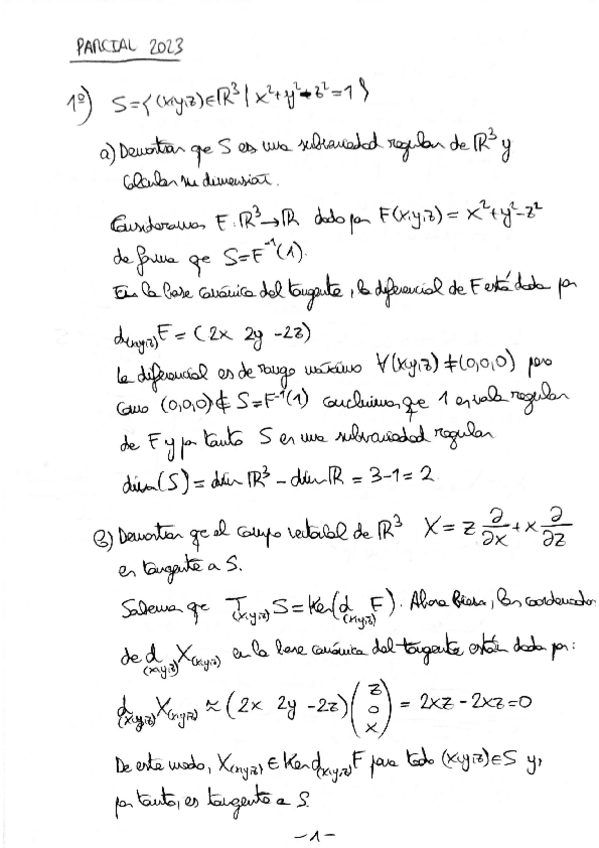 PARCIAL 2023
1º) S={(x,y,z)∈ℝ³ | x²+y²-z²=1}
a) Demostrar que S es una subvariedad regular de ℝ³ y
calcular su dimensión.
Consideramos F:ℝ³→ℝ dada por F(x,y,z)=x²+y²-z²
de forma que S=F⁻¹(1).
En la base canónica del tangente, la diferencial de F está dada por
d₍ₓ,y,z₎F=(2x 2y -2z)
La diferencial es de rango máximo ∀(x,y,z)≠(0,0,0) pero
como (0,0,0)∉S=F⁻¹(1) concluimos que 1 es valor regular
de F y por tanto S es una subvariedad regular
dim(S)=dim ℝ³ - dim ℝ = 3-1=2
b) Demostrar que el campo vectorial de ℝ³ X = z ∂/∂x + x ∂/∂z
es tangente a S.
Sabemos que T₍ₓ,y,z₎S=Ker(d₍ₓ,y,z₎F). Ahora bien, las coordenadas
de d₍ₓ,y,z₎X₍ₓ,y,z₎ en la base canónica del tangente están dada por:
d₍ₓ,y,z₎X₍ₓ,y,z₎ ≈ (2x 2y -2z)(z 0 x) = 2xz-2xz=0
De este modo, X₍ₓ,y,z₎∈Ker d₍ₓ,y,z₎F para todo (x,y,z)∈S y,
por tanto, es tangente a S.
-1-